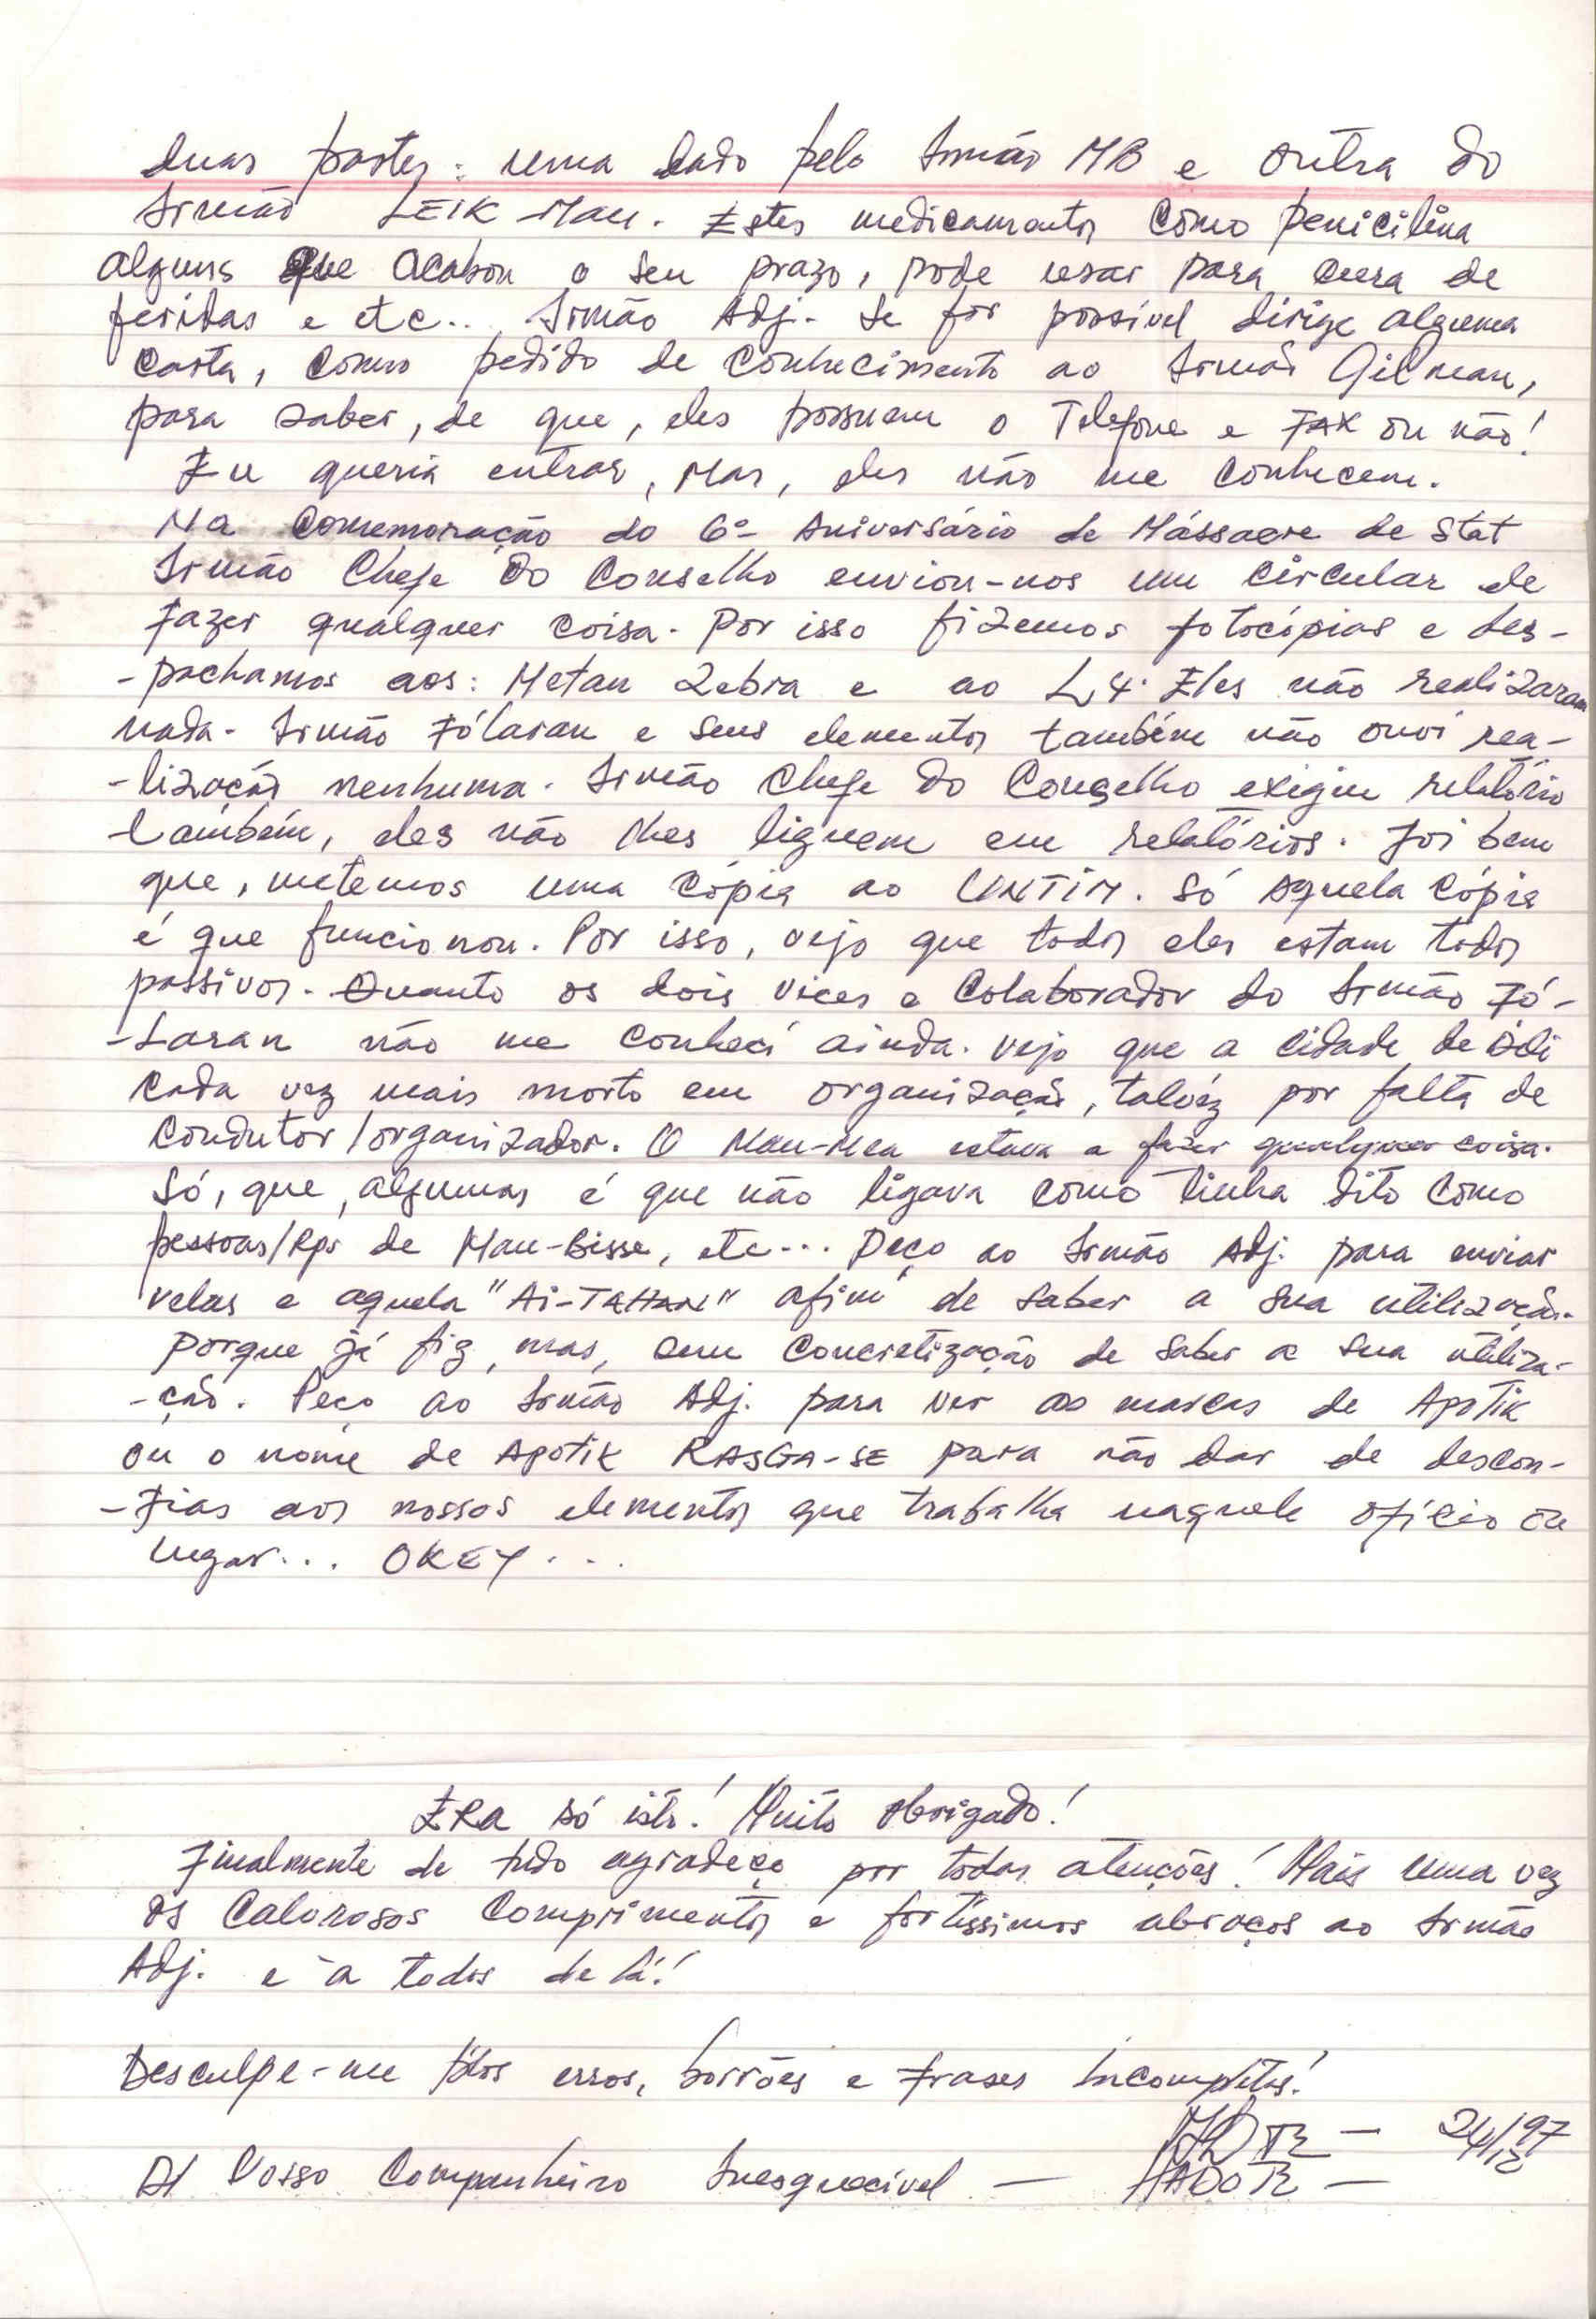 duas partes: uma dado pelo Irmão MB e outra do
Irmão LEIK-Mau. Estes medicamentos como penicilina
alguns que acabou o seu prazo, pode usar para cura de
feridas e etc.. Irmão Adj. se for possível dirige alguma
carta, como pedido de conhecimento ao Irmão Gilman,
para saber, de que, eles possuem o Telefone e FAX ou não!
Eu queria entrar, mas, eles não me conhecem.
Na Comemoração do 6º Aniversário de Mássacre de Stat
Irmão Chefe do Conselho enviou-nos um circular de
fazer qualquer coisa. Por isso fizemos fotocópias e des-
-pachamos aos: Metan Zebra e ao L4. Eles não realizaram
nada. Irmão Fólaran e seus elementos também não ouvi rea-
-lização nenhuma. Irmão Chefe do Conselho exigiu relatório
também, eles não lhes liguem em relatórios. Foi bem
que, metemos uma cópia ao UNTIM. Só aquela cópia
é que funcionou. Por isso, vejo que todos eles estam todos
passivos. Quanto os dois vices e Colaborador do Irmão Fó-
-laran não me conheci ainda. Vejo que a cidade de Dili
cada vez mais morto em organização, talvéz por falta de
Condutor/organizador. O Mau-Mea estava a fazer qualquer coisa.
Só, que, algumas é que não ligava como tinha dito como
pessoas/Rps de Mau-Bisse, etc... Peço ao Irmão Adj. para enviar
velas e aquela "Ai-TAHAN" afim de saber a sua utilização.
Porque já fiz, mas, sem concretização de saber a sua utiliza-
-ção. Peço ao Irmão Adj. para ver as marcas de Apotik
ou o nome de Apotik RASGA-SE para não dar de descon-
-fias aos nossos elementos que trabalha naquele ofício ou
lugar... OKEY...
ERA só isto! Muito obrigado!
Finalmente de tudo agradeço por todas atenções! Mais uma vez
os Calorosos Comprimentos e fortíssimos abraços ao Irmão
Adj. e à todos de lá!
Desculpe-me p'los erros, borrões e frases incompletas!
24/12/97
D/ Vosso Companheiro Inesquecível —